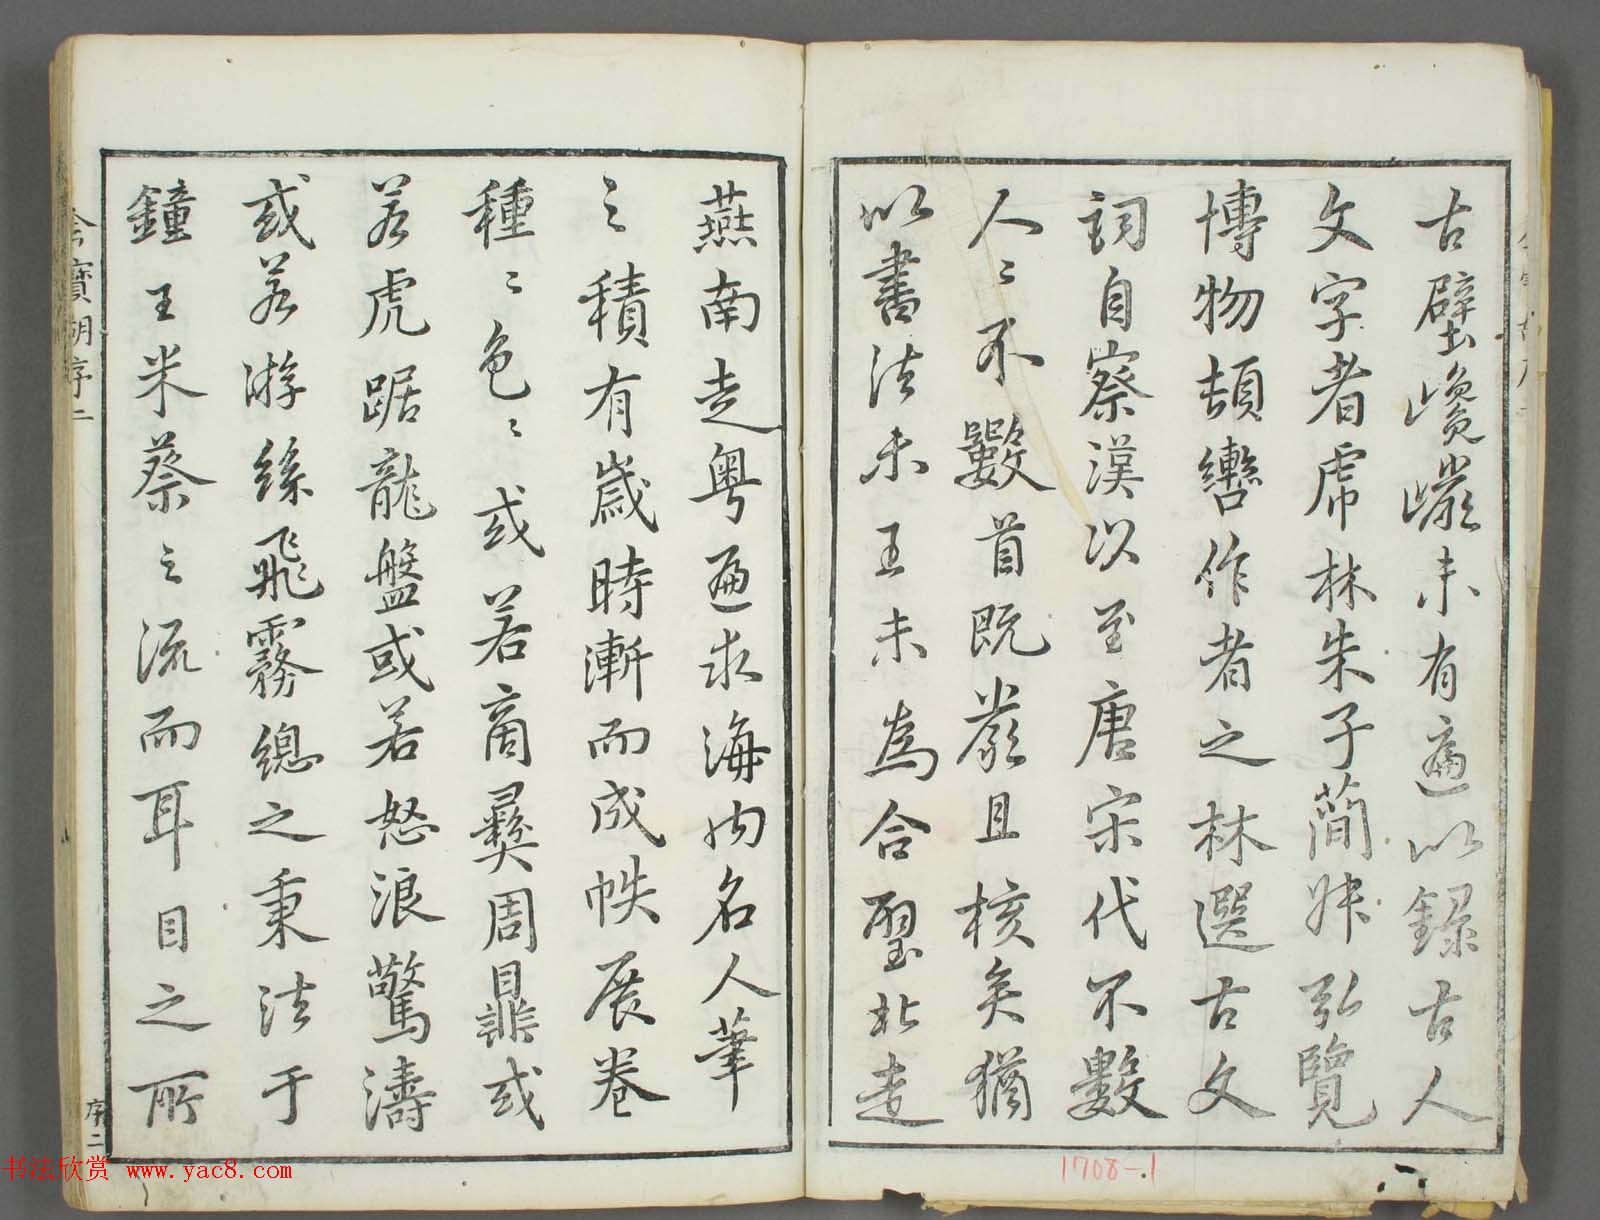 古壁巑巖未有遍以錄古人
文字者虎林朱子蕳叔弘覽
博物頡轡作者之林選古文
詞自秦漢以至唐宋代不數
人人不數首既嚴且核矣猶
以書法未工未為合璧北走
燕南走粤遍求海內名人筆
之積有歲時漸而成帙展卷
種種色色或若商彝周鼎或
若虎踞龍盤或若怒浪驚濤
或若游絲飛霧總之秉法于
鐘王米蔡之流而耳目之所
序二
序二
1708-1
书法欣赏 www.yac8.com